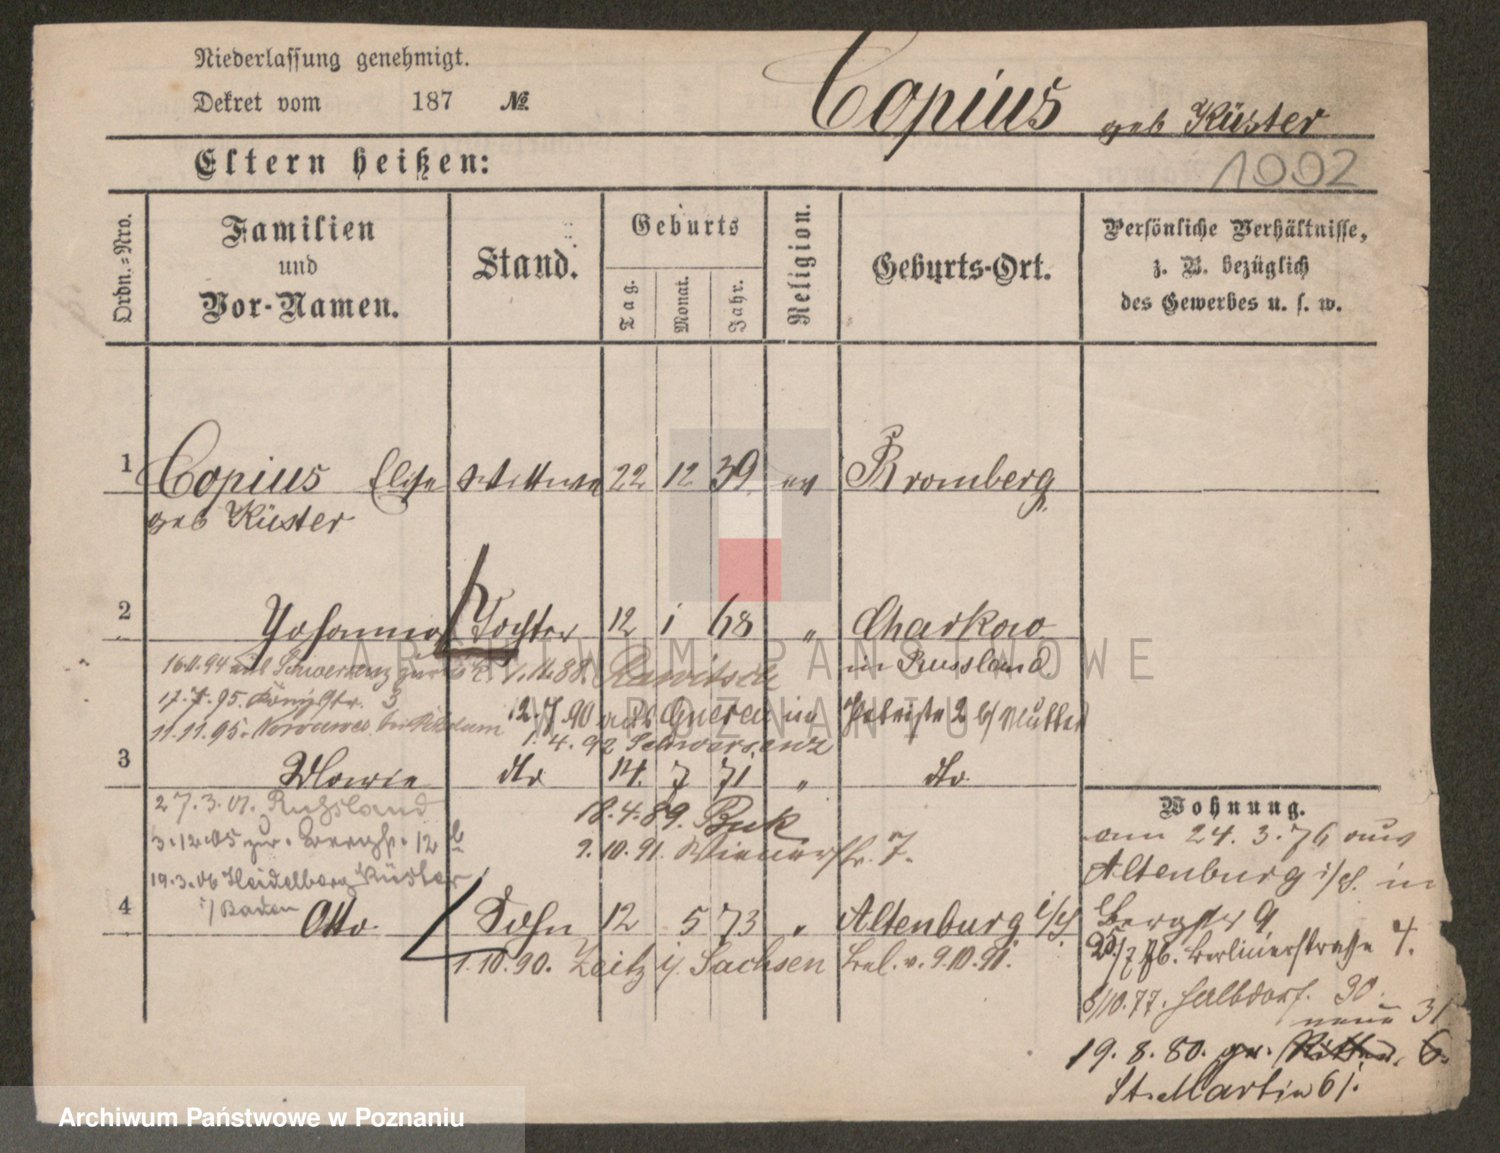 Niederlassung genehmigt.
Dekret vom 187 №
Copius geb Küster
1002
Eltern heißen:
Ordn.-Nro.
Familien und Vor-Namen.
Stand.
Geburts
Tag.
Monat.
Jahr.
Religion.
Geburts-Ort.
Persönliche Verhältnisse,
z. B. bezüglich
des Gewerbes u. s. w.
1 Copius Elise Wittwe 22 12 39 ev Bromberg
geb Küster
2 Johanna Tochter 12 1 68 " Charkow
in Russland
16.11.94 Schwersenz zurück 1.11.88. Rawitsch
17.7.95. Königstr. 3
2.7.90 aus Gnesen in 2 b/ Mutter
11.11.95. Nowawes bei Potsdam
1.4.92 Schwersenz
3 Marie dto 14. 7 71 " dto.
27.3.01. Russland
18.4.89. Buk
3.12.05 zur. Bergstr. 12 b
9.10.91. Wienerstr. 7.
19.3.06 Heidelberg Küster
i/Baden
4 Otto Sohn 12 5 73 " Altenburg i/S.
1.10.90. Zeitz i/ Sachsen v. 9.10.91.
Wohnung.
am 24.3.76 aus
Altenburg i/S. in
Bergstr 9
25/7 76. Berlinerstrasse 4.
8/10.77. Halbdorf. 30
neue 31
19.8.80. gr. Ritter. 6.
St. Martin 61.
ARCHIWUM PAŃSTWOWE
W POZNANIU
Archiwum Państwowe w Poznaniu